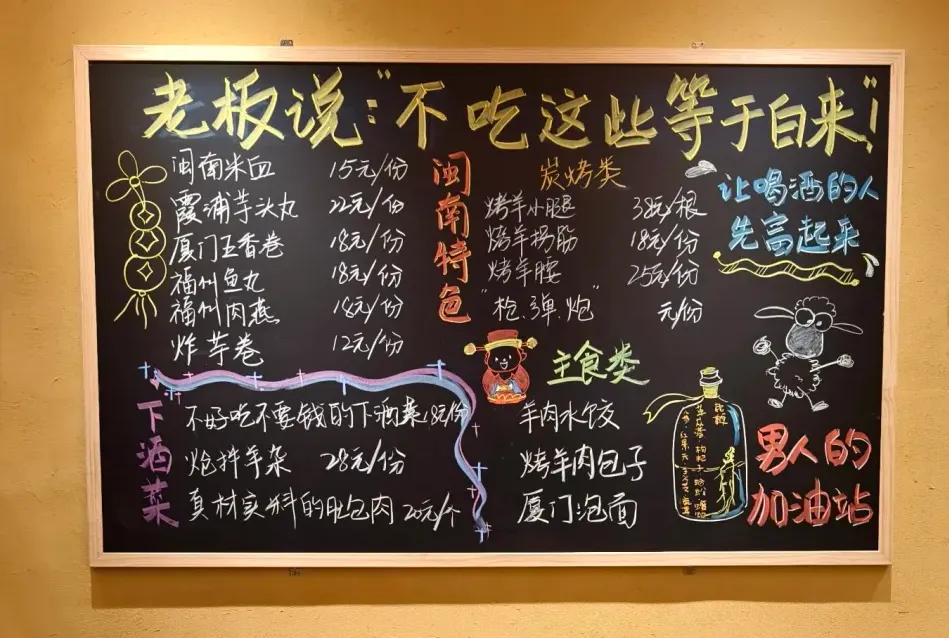 老板说：“不吃这些等于白来”！
闽南米血 15元/份
霞浦芋头丸 22元/份
厦门五香卷 18元/份
福州鱼丸 18元/份
福州肉燕 18元/份
炸芋卷 12元/份
闽南特色
炭烤类
烤羊小腿 38元/根
烤羊拐筋 18元/份
烤羊腰 25元/份
“枪.弹.炮” 元/份
让喝酒的人
先高起来
下酒菜
不好吃不要钱的下酒菜 18元/份
炝拌羊杂 28元/份
真材实料的肚包肉 20元/个
主食类
羊肉水饺
烤羊肉包子
厦门泡面
枸杞子
男人的
加油站